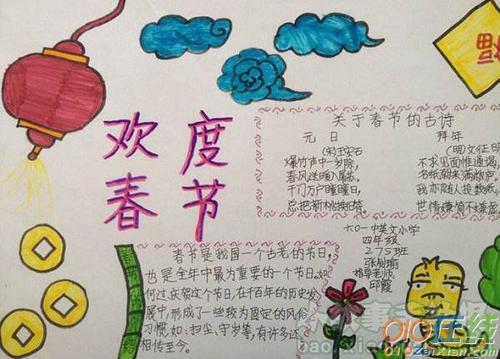 欢度
春节
福
关于春节的古诗
元日
(宋)王安石
爆竹声中一岁除,
春风送暖入屠苏。
千门万户曈曈日,
总把新桃换旧符
拜年
(明)文征明
不求见面惟通谒,
名纸朝来满敝庐。
我亦随人投数纸,
世情嫌简不嫌虚
六〇一中英文小学
四年级
275班
指导老师
邱霞
春节是我国一个古老的节日,
也是全年中最为重要的一个节日。如
何过庆贺这个节日,在千百年的历史发
展中,形成了一些较为固定的风俗
习惯,如:扫尘、守岁等,有许多还
相传至今。
010在线
010zaixian.com